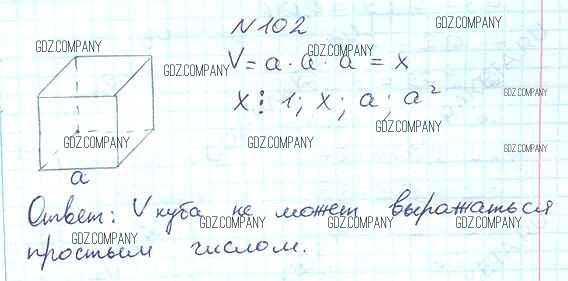 N 102
GDZ.COMPANY
GDZ.COMPANY
GDZ.COMPANY
V = a · a · a = x
GDZ.COMPANY
GDZ.COMPANY
x ⋮ 1; x; a; a²
GDZ.COMPANY
GDZ.COMPANY
GDZ.COMPANY
GDZ.COMPANY
a
Ответ: V куба не может выражаться
GDZ.COMPANY
GDZ.COMPANY
GDZ.COMPANY
GDZ.COMPANY
простым числом.